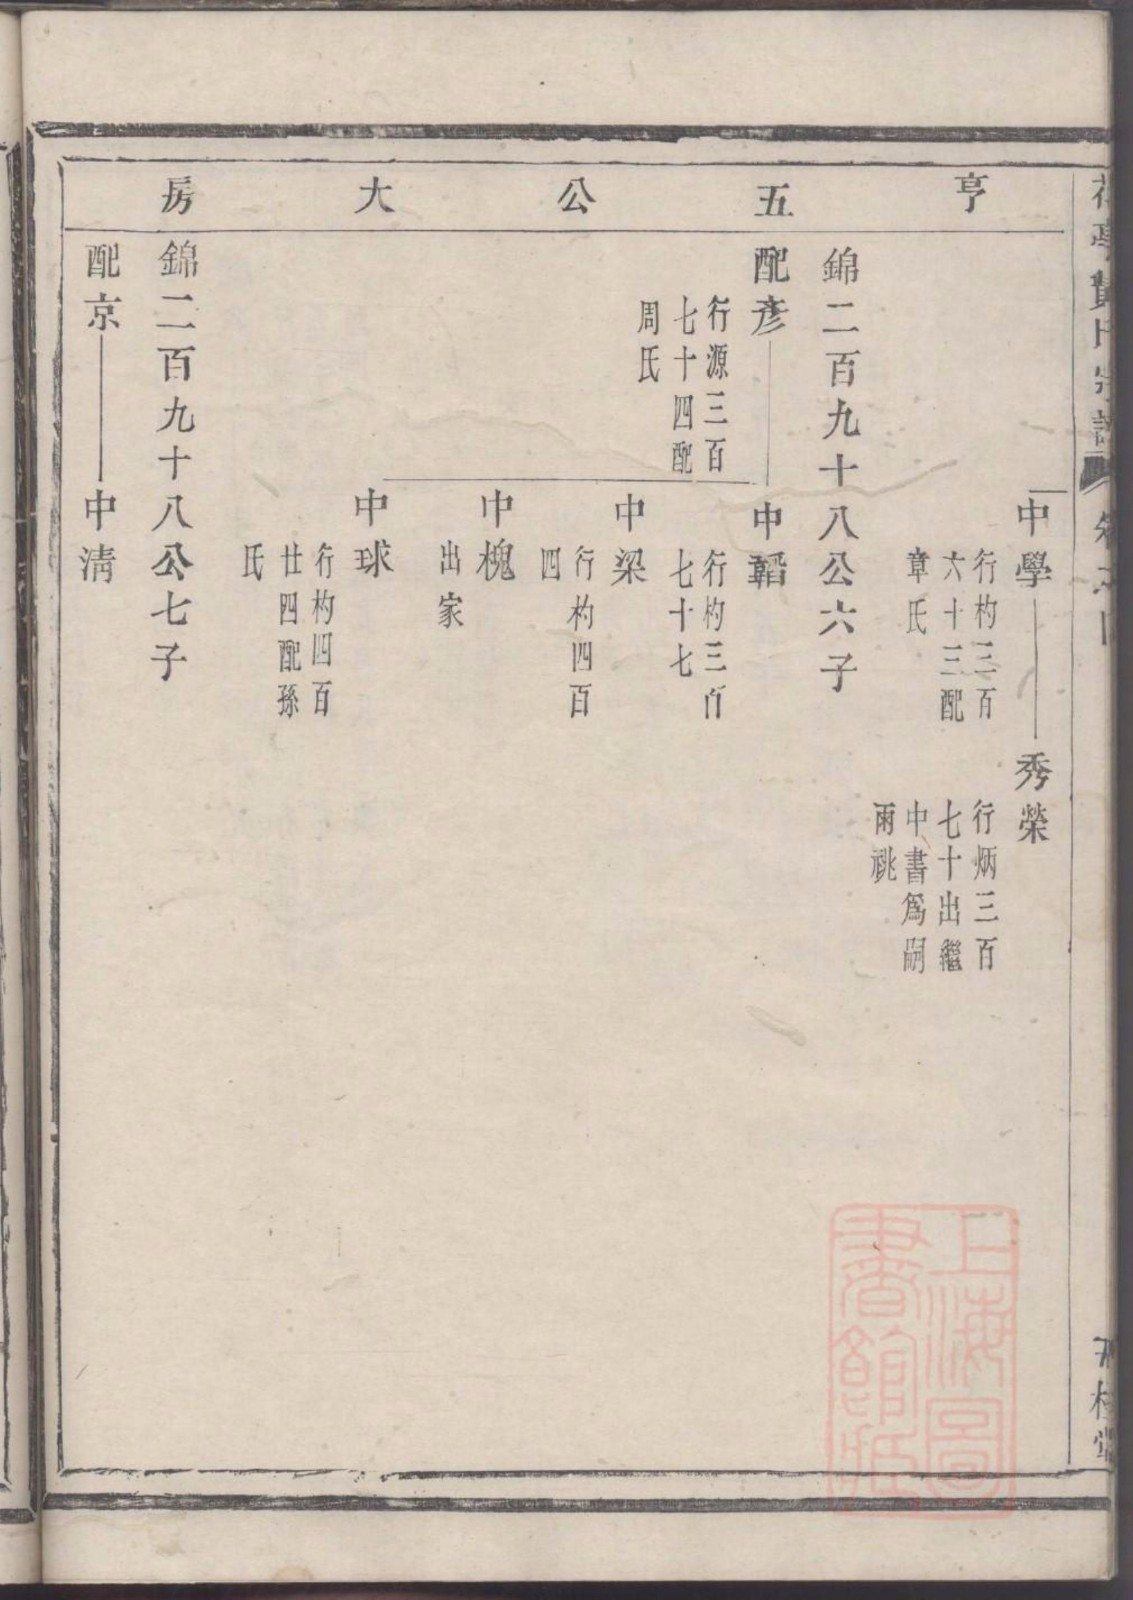 亨五公大房
中學
行杓三百
六十三配
章氏
秀榮
行炳三百
七十出繼
中書爲嗣
兩祧
錦二百九十八公六子
配彥
行源三百
七十四配
周氏
中韜
行杓三百
七十七
中梁
行杓四百
四
中槐
出家
中球
行杓四百
廿四配孫
氏
錦二百九十八公七子
配京
中淸
上海圖
書館藏